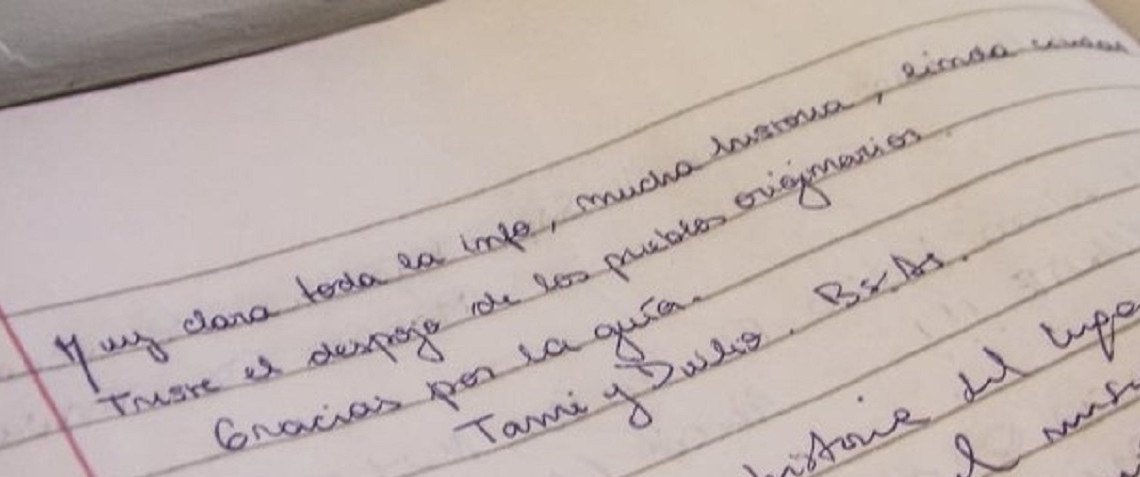 Muy clara toda la info, mucha historia, linda
Triste el despojo de los pueblos originarios.
Gracias por la guía.
Tami y Duilio. Bs. As.
historia del lugar
el